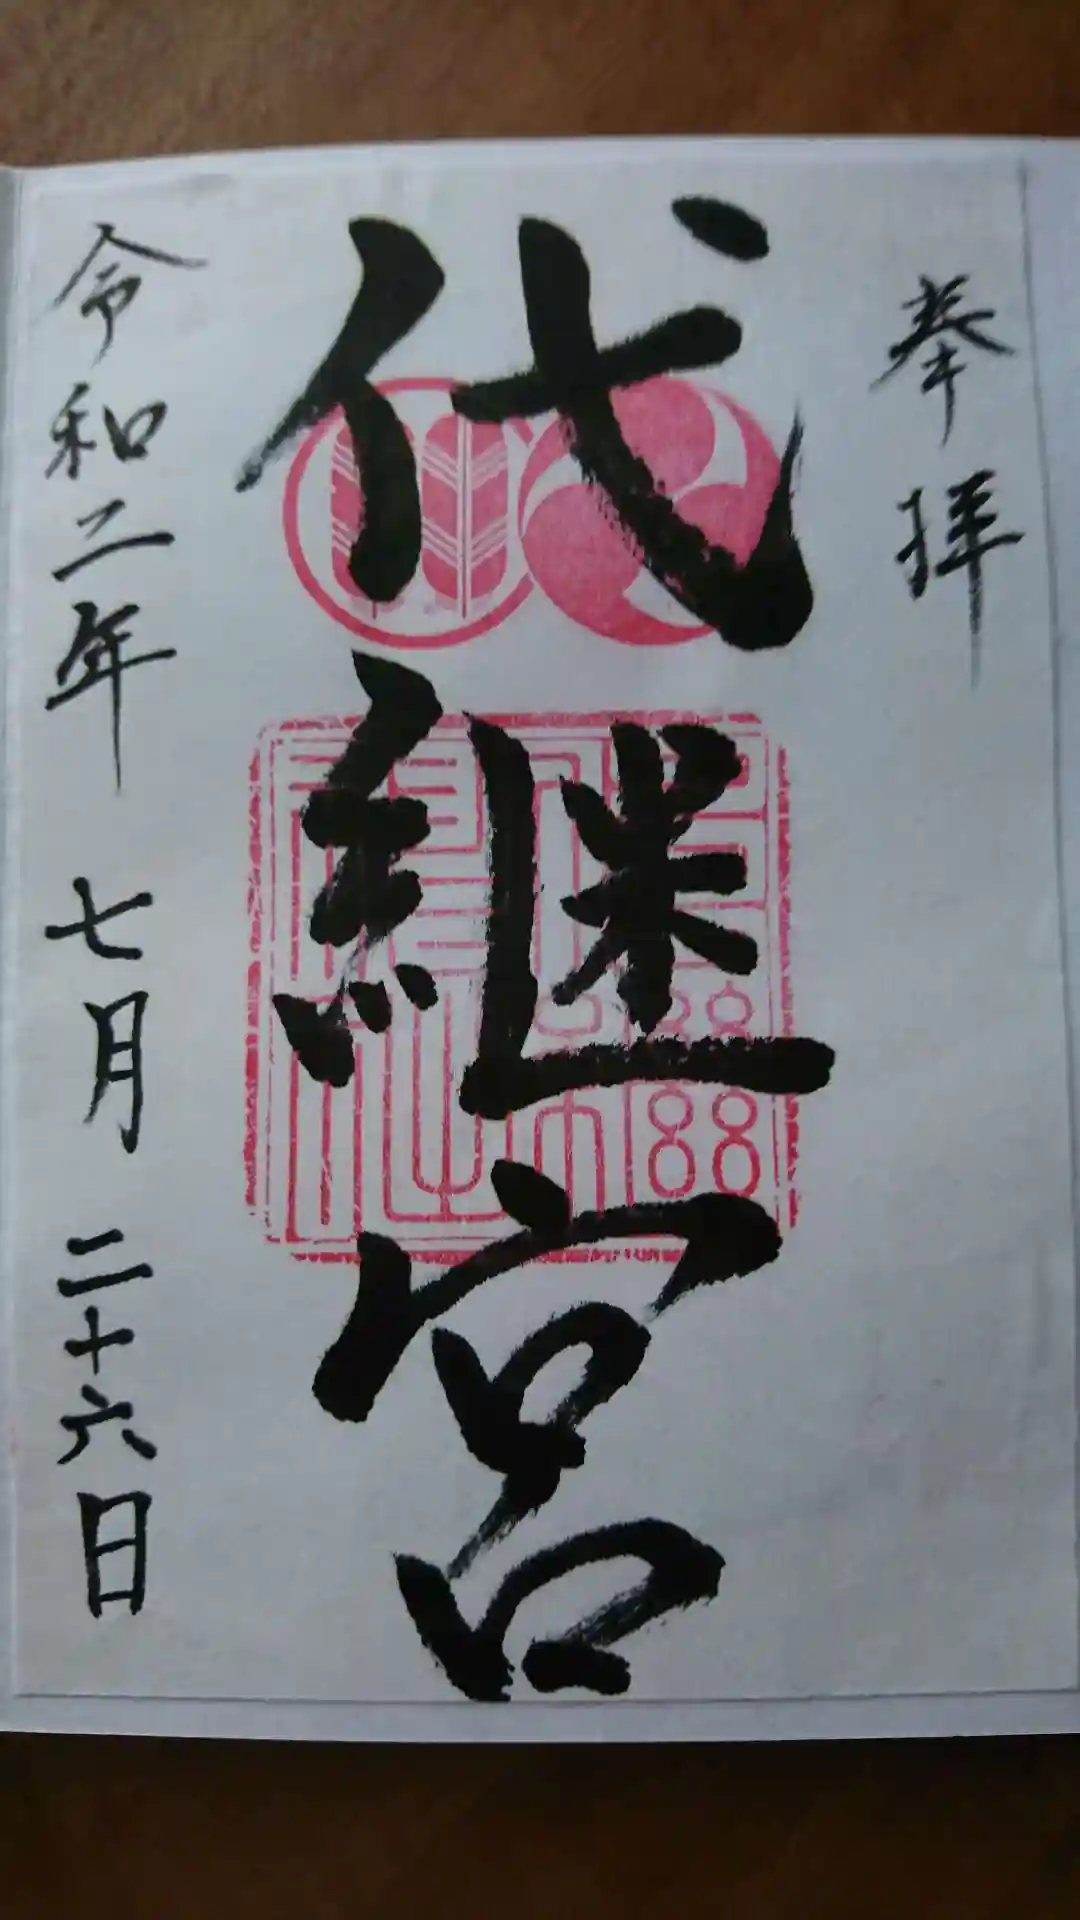 奉拝
代継宮
令和二年 七月 二十六日